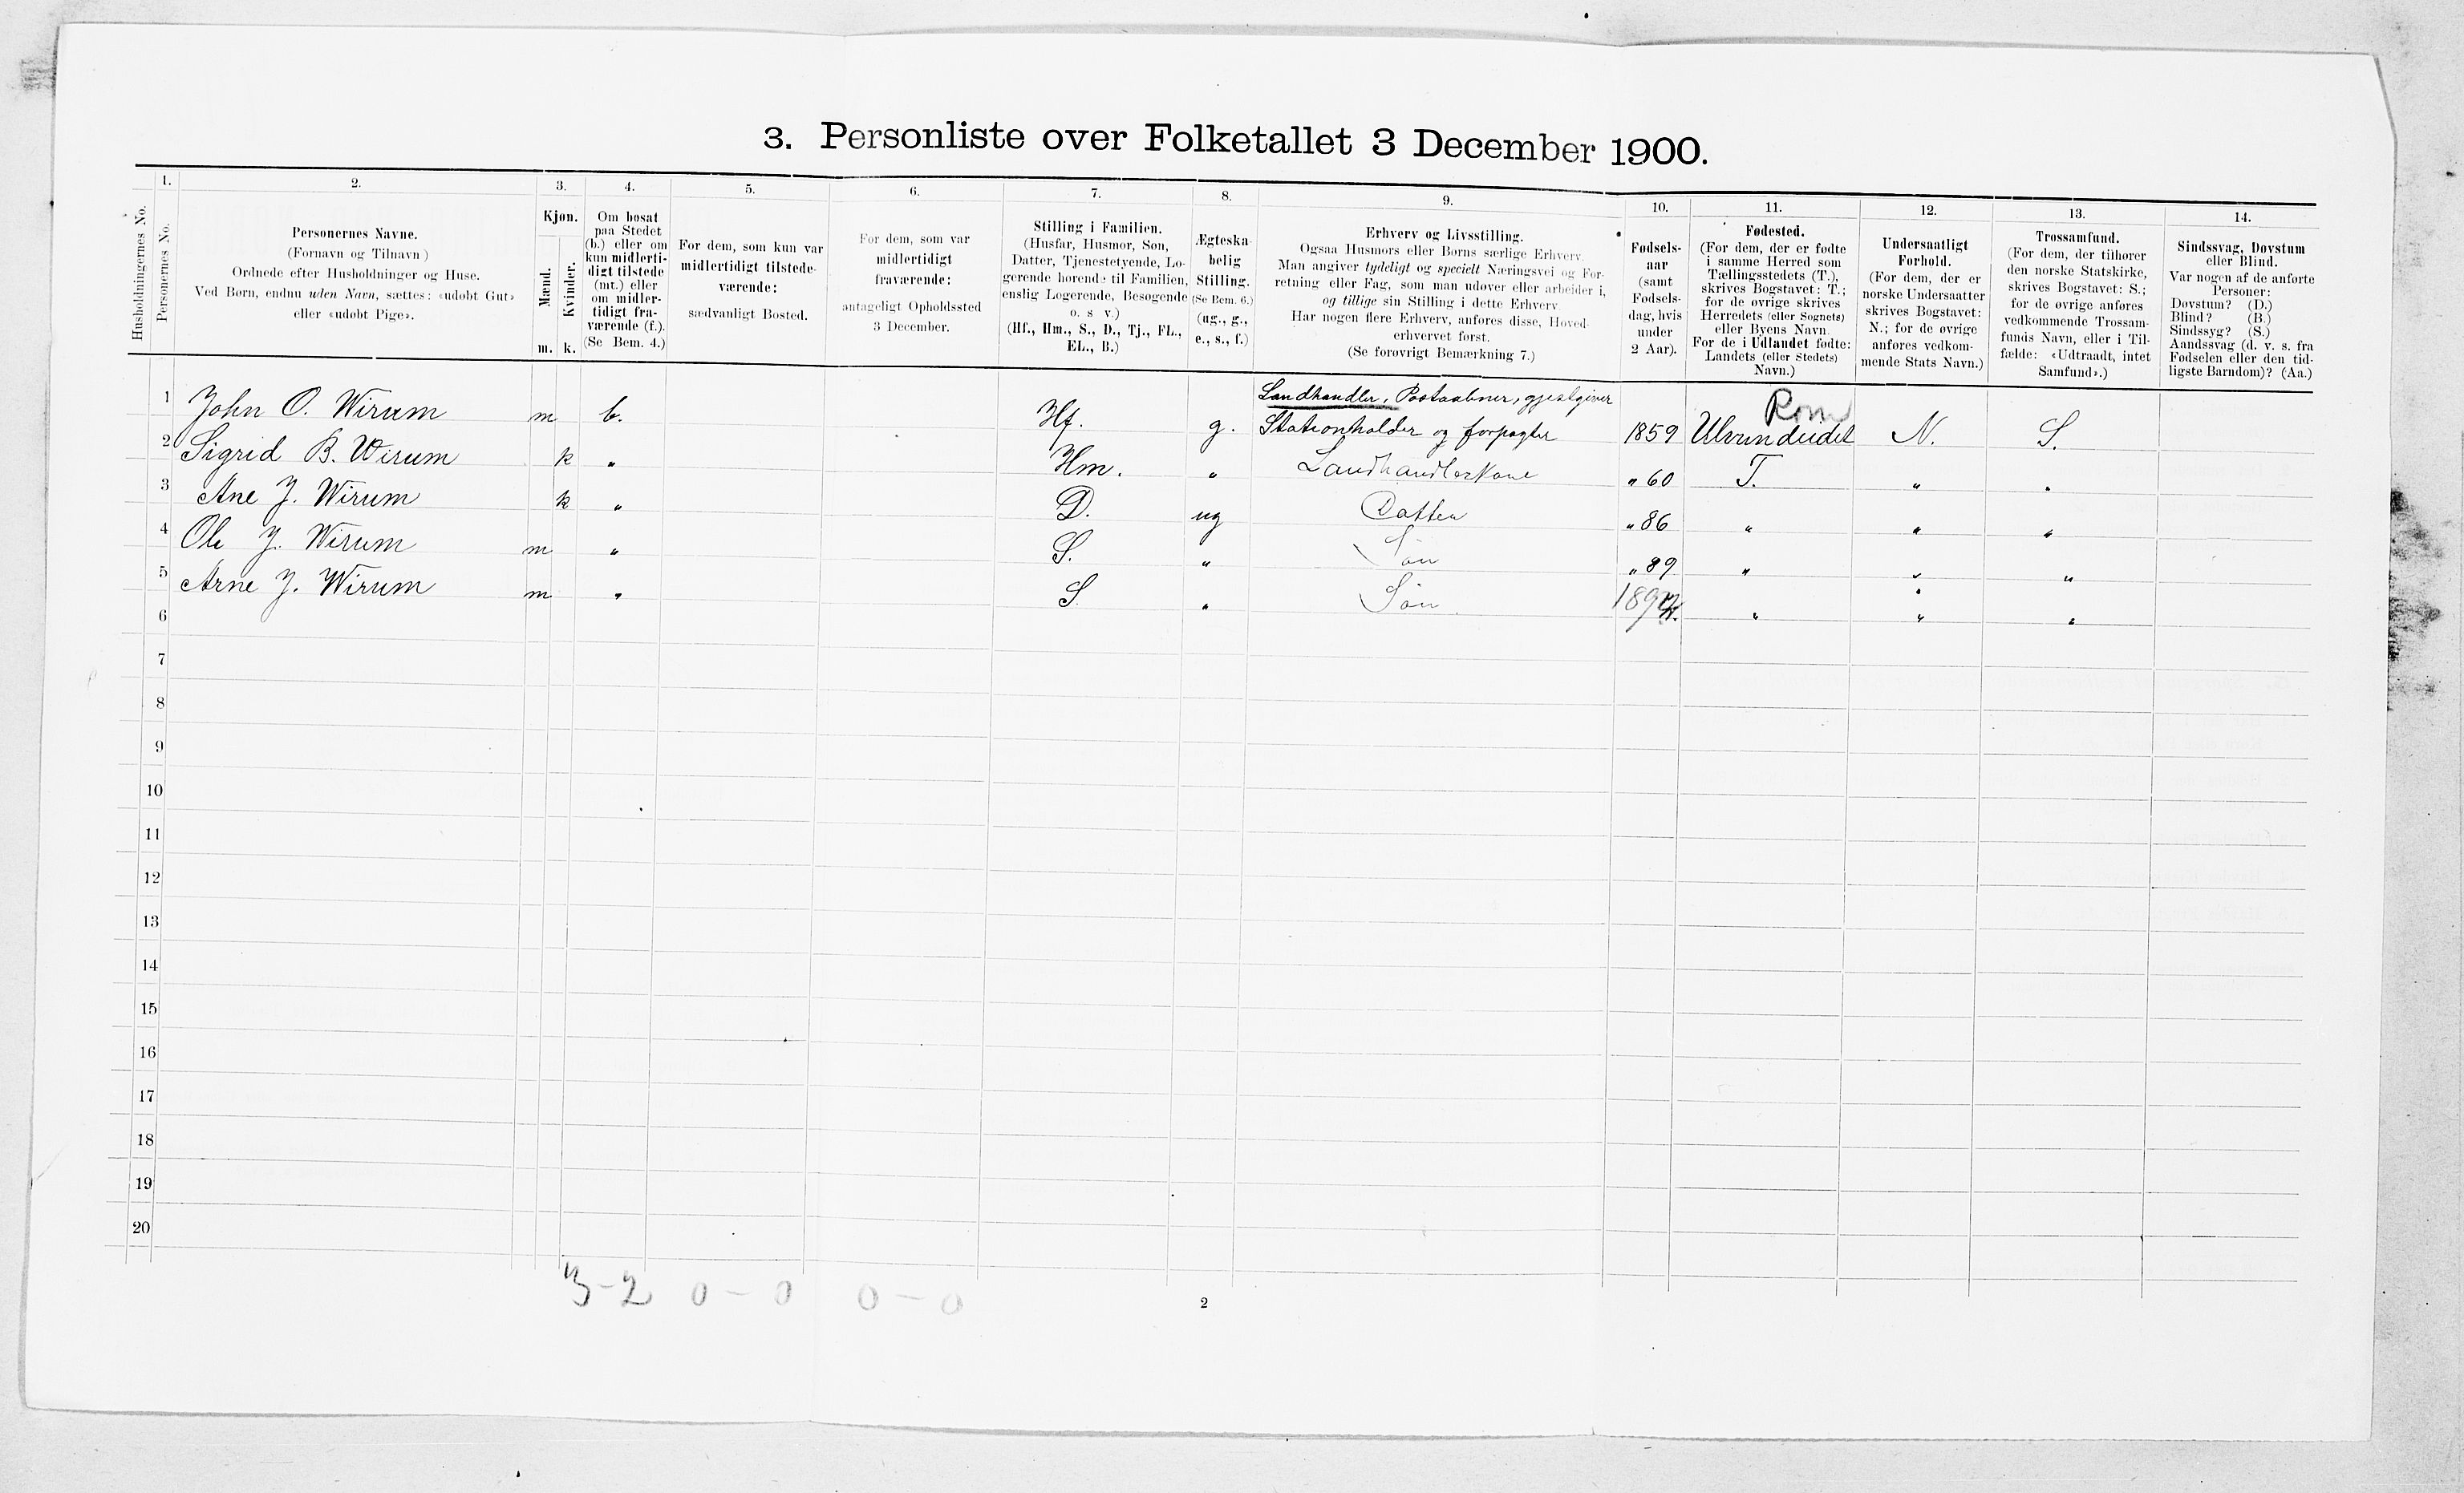 3. Personliste over Folketallet 3 December 1900.
1. 2. 3. 4. 5. 6. 7. 8. 9. 10. 11. 12. 13. 14.
Husholdningernes No.
Personernes No.
Personernes Navne.
(Fornavn og Tilnavn)
Ordnede efter Husholdninger og Huse.
Ved Børn, endnu uden Navn, sættes: «udøbt Gut»
eller «udøbt Pige».
Kjøn.
Mænd.
Kvinder.
m. k.
Om bosat
paa Stedet
(b.) eller om
kun midlerti-
digt tilstede
(mt.) eller
om midler-
tidigt fra-
værende (f.).
(Se Bem. 4.)
For dem, som kun var
midlertidigt tilstede-
værende:
sædvanligt Bosted.
For dem, som var
midlertidigt
fraværende:
antageligt Opholdssted
3 December.
Stilling i Familien.
(Husfar, Husmor, Søn,
Datter, Tjenestetyende, Lo-
gerende hørende til Familien,
enslig Logerende, Besøgende
o. s v.)
(Hf., Hm., S., D., Tj., FL.,
EL., B.)
Ægteska-
belig
Stilling.
(Se Bem. 6.)
(ug., g.,
e., s., f.)
Erhverv og Livsstilling.
Ogsaa Husmors eller Børns særlige Erhverv.
Man angiver tydeligt og specielt Næringsvei og For-
retning eller Fag, som man udøver eller arbeider i,
og tillige sin Stilling i dette Erhverv
Har nogen flere Erhverv, anføres disse, Hoved-
erhvervet først.
(Se forøvrigt Bemærkning 7.)
Fødsels-
aar
(samt
Fødsels-
dag, hvis
under
2 Aar).
Fødested.
(For dem, der er fødte
i samme Herred som
Tællingsstedets (T.),
skrives Bogstavet: T.;
for de øvrige skrives
Herredets (eller Sognets)
eller Byens Navn.
For de i Udlandet fødte:
Landets (eller Stedets)
Navn.)
Undersaatligt
Forhold.
(For dem, der er
norske Undersaatter
skrives Bogstavet:
N.; for de øvrige
anføres vedkom-
mende Stats Navn.)
Trossamfund.
(For dem, der tilhører
den norske Statskirke,
skrives Bogstavet: S.;
for de øvrige anføres
vedkommende Trossam-
funds Navn, eller i Til-
fælde: «Udtraadt, intet
Samfund».)
Sindssvag, Døvstum
eller Blind.
Var nogen af de anførte
Personer:
Døvstum? (D.)
Blind? (B.)
Sindssyg? (S.)
Aandssvag (d. v. s. fra
Fødselen eller den tid-
ligste Barndom)? (Aa.)
Landhandler, Postaabner, gjestgiver
1 John O. Wirum m b. Hf. g. Stationholder og forpagter 1859 Ulvundeidet N. S.
2 Sigrid B. Wirum k " Hm. " Landhandlerkone " 60 T. " "
3 Ane J. Wirum k " D. ug Datter " 86 " " "
4 Ole J. Wirum m " S. " Søn " 89 " " "
5 Arne J. Wirum m " S " Søn " " "
6
7
8
9
10
11
12
13
14
15
16
17
18
19
20
3-2 0-0 0-0
2